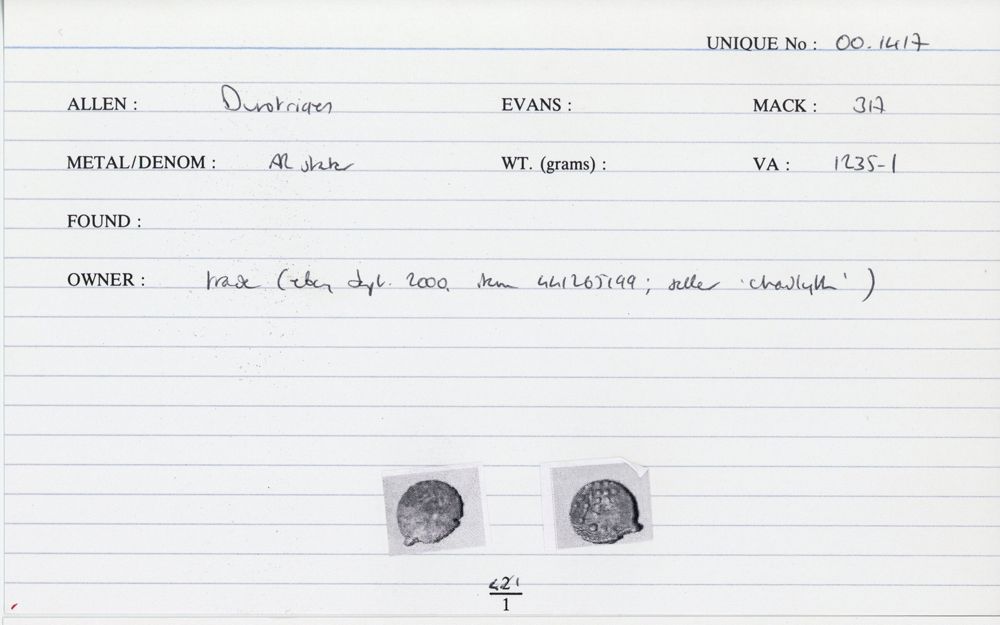 UNIQUE No : 00.1417
ALLEN : Durotriges EVANS : MACK : 317
METAL/DENOM : AR stater WT. (grams) : VA : 1235-1
FOUND :
OWNER : trade (ebay Sept. 2000, item 441265199; seller ' ')
1